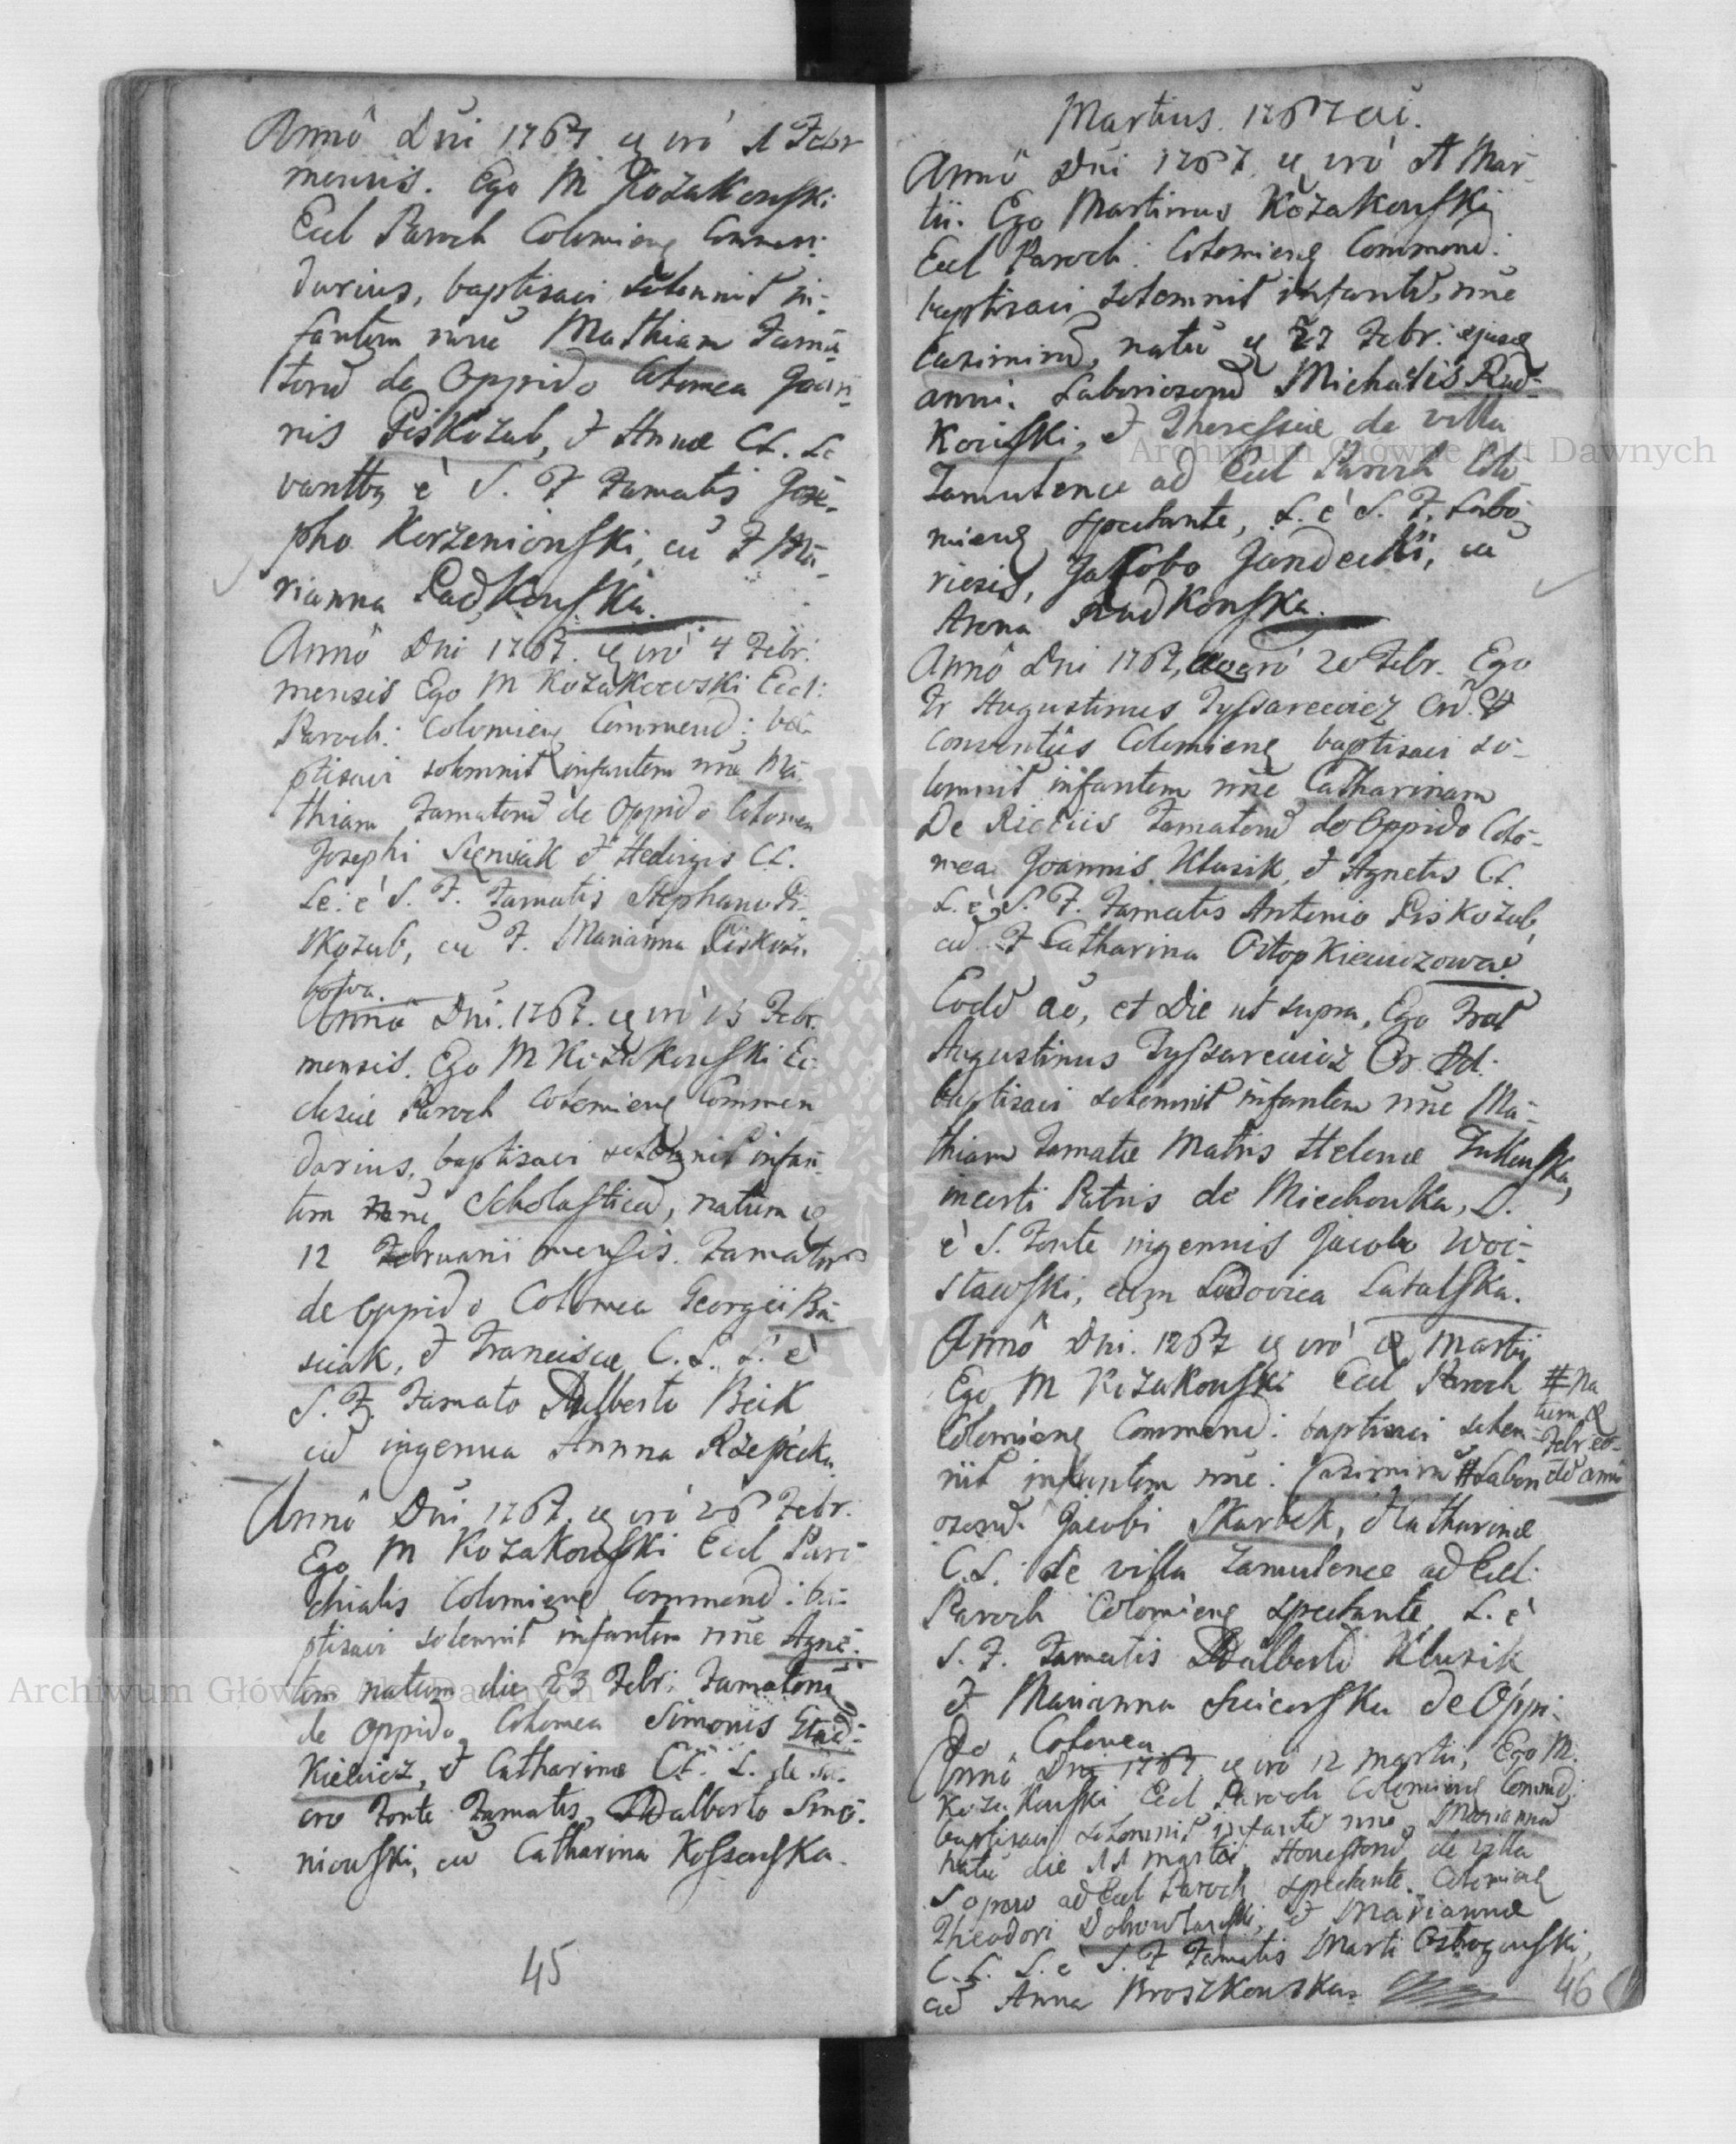 Annô Dni 1767 vero 1 Febr
mensis. Ego M Kozakowski
Eccl Paroch Colomieng Commen:
darius, baptisavi solemnit in-
fantem nnē Mathiam Fama
torū de Oppido Colomea Joan-
nis Piskozub, et Annæ C.L. Le
vanttbg è S. F. Famatis Jose-
pho Korzeniowski, cū F Ma-
rianna Ladkowska.
Annô Dni 1767. vero 4 Febr.
mensis Ego M Kozakowski Eccl:
Paroch: Colomieng Commend: ba-
ptisavi solemnit infantem nnē Ma-
thiam Famatorū de Oppido Colomea
Josephi Sięniak et Hedvigis C.L.
Le: è S. F. Famatis Stephano Pi-
skozub, cū F. Marianna Piskozu-
bowa.
Annô Dni. 1767. vero 15 Febr.
mensis. Ego M Kozakowski Ec-
clesiæ Paroch Colomieng Commen
darius, baptisavi solemnit infan-
tem nnē Scholasticā, natam
12 Februarii mensis. Famator
de Oppido Colomea Georgii Ba-
siak, et Franciscæ C.L. L. è
S. F. Famato Adalberto Bcik
cū ingenua Annna Rzepecka.
Annô Dni 1767. vero 26 Febr.
Ego M Kozakowski Eccl Paro
chialis Colomieng Commend: ba-
ptisavi solemnit infantem nnē Agne-
tem natam die 23 Febr: Famatorū
de Oppido Colomea Simonis
kiewicz, et Catharinæ C.L. L. de sa-
cro Fonte Famatis Adalberto Smo-
niowski, cū Catharina Kossowska.
45
Martius. 1767 ai.
Annô Dni 1767. vero Mar-
tii. Ego Martinus Kozakowski
Eccl Paroch: Colomieng Commend:
baptisavi solemnit infantē, nnē
Casimirū, natū 27 Febr: ejusd
anni. Laboriosorū Michaelis Rad-
kowski, et Theressiæ de villa
Zamulence ad Eccl Paroch Colo-
mieng spectante, L. è S. F. Labo-
riosis, Jakobo Jandecki, cū
Anna Radkowska.
Annô Dni 1767, vero 20 Febr. Ego
Fr Augustinus Tyssarewicz Ord.
Conventūs Colomieng baptisavi so-
lemnit infantem nnē Catharinam
De Ricciis Famatorū de Oppido Colo-
mea Joannis Klusik, et Agnetis C.L.
L. è S. F. Famatis Antonio Piskozub,
cū F Catharina Ostopkiewiczowa.
Eodē aō, et Die ut supra, Ego Frat
Augustinus Tyssarewicz Or. Pd.
baptisavi solemnit infantem nnē Ma-
thiam Famatæ Matris Helenæ
incerti Patris de Miechowka, L.
è S. Fonte ingennis Jacobo Woi-
sławski, cum Ludovica Latalska.
Annô Dni. 1767 vero 8 Martii
Ego M Kozakowski Eccl Paroch # na
Colomieng Commend: baptisavi solem- tum
Febr eo-
nit infantem nnē: Casimirū # Labori dē anno
osorū Jacobi Skarbek, et Catharinæ
C.L. de villa Zamulence ad Eccl
Paroch Colomieng spectante L. è
S. F. Famatis Adalberto Klusik
et Marianna de Oppi-
do Colomea
Annô Dni 1767 vero 12 Martii, Ego M.
Kozakowski Eccl Paroch Colomieng Commd:
baptisavi solemnit infantē nnē, Mariannā
natū die 11 Martii, Honestorū de villa
Sopow ad Eccl Paroch spectante. Colomieng
Theodori Dobrowlanski, et Mariannæ
C.L. L. è S. F Famatis Marti
cū Anna Broszkowska
46
Archiwum Główne Akt Dawnych
Archiwum Główne Akt Dawnych